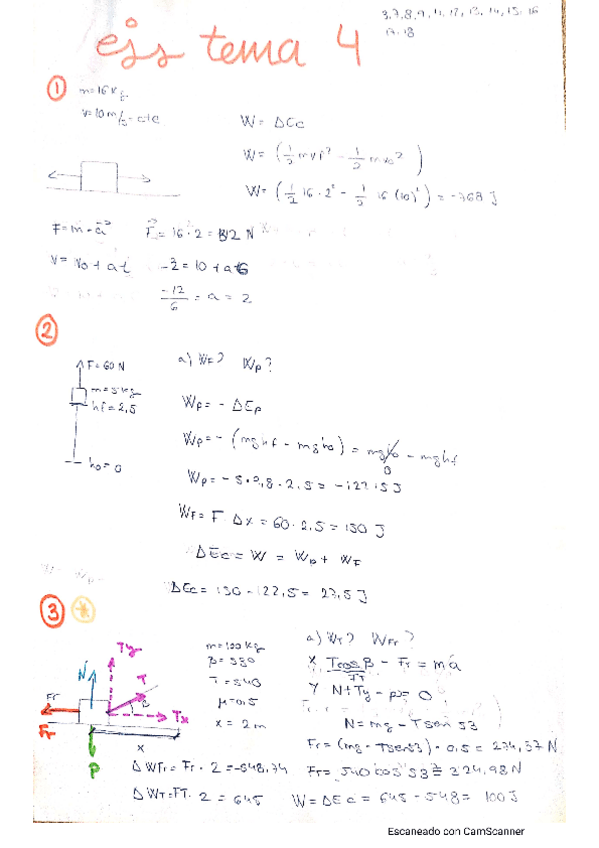 ejs tema 4
①
m=16 Kg
V=10m/s = cte
W= ΔEc
W= (1/2 m vf² - 1/2 m vo²)
W= (1/2 16·2² - 1/2 16 (10)²) = -768 J
F=m·a F= 16·2 = 32 N
V= Vo + at -2 = 10 + a·6
-12/6 = a = 2
②
F=60 N
m=5 kg
hf=2,5
ho=0
a) WF? Wp?
Wp= - ΔEp
Wp= - (mghf - mgho) = mgho - mghf
0
Wp= - 5·9,8·2,5= -122,5 J
WF= F·Δx = 60·2,5= 150 J
ΔEc = W = Wp + WF
ΔEc= 150 - 122,5 = 27,5 J
③
m=100 Kg
β= 530
T=540
μ=0,5
x= 2m
N Ty T β Tx Fr Fr P x
a) WT? WFr?
X Tcosβ - Fr = ma
Y N+Ty - P = 0
N=mg - Tsen 53
Fr=(mg - Tsen53)·0,5 = 274,37N
FT= 540cos 53 = 324,98 N
ΔWFr= Fr·2 =-548,74
ΔWT=FT·2 = 645
W=ΔEc = 645 - 548= 100 J
Escaneado con CamScanner